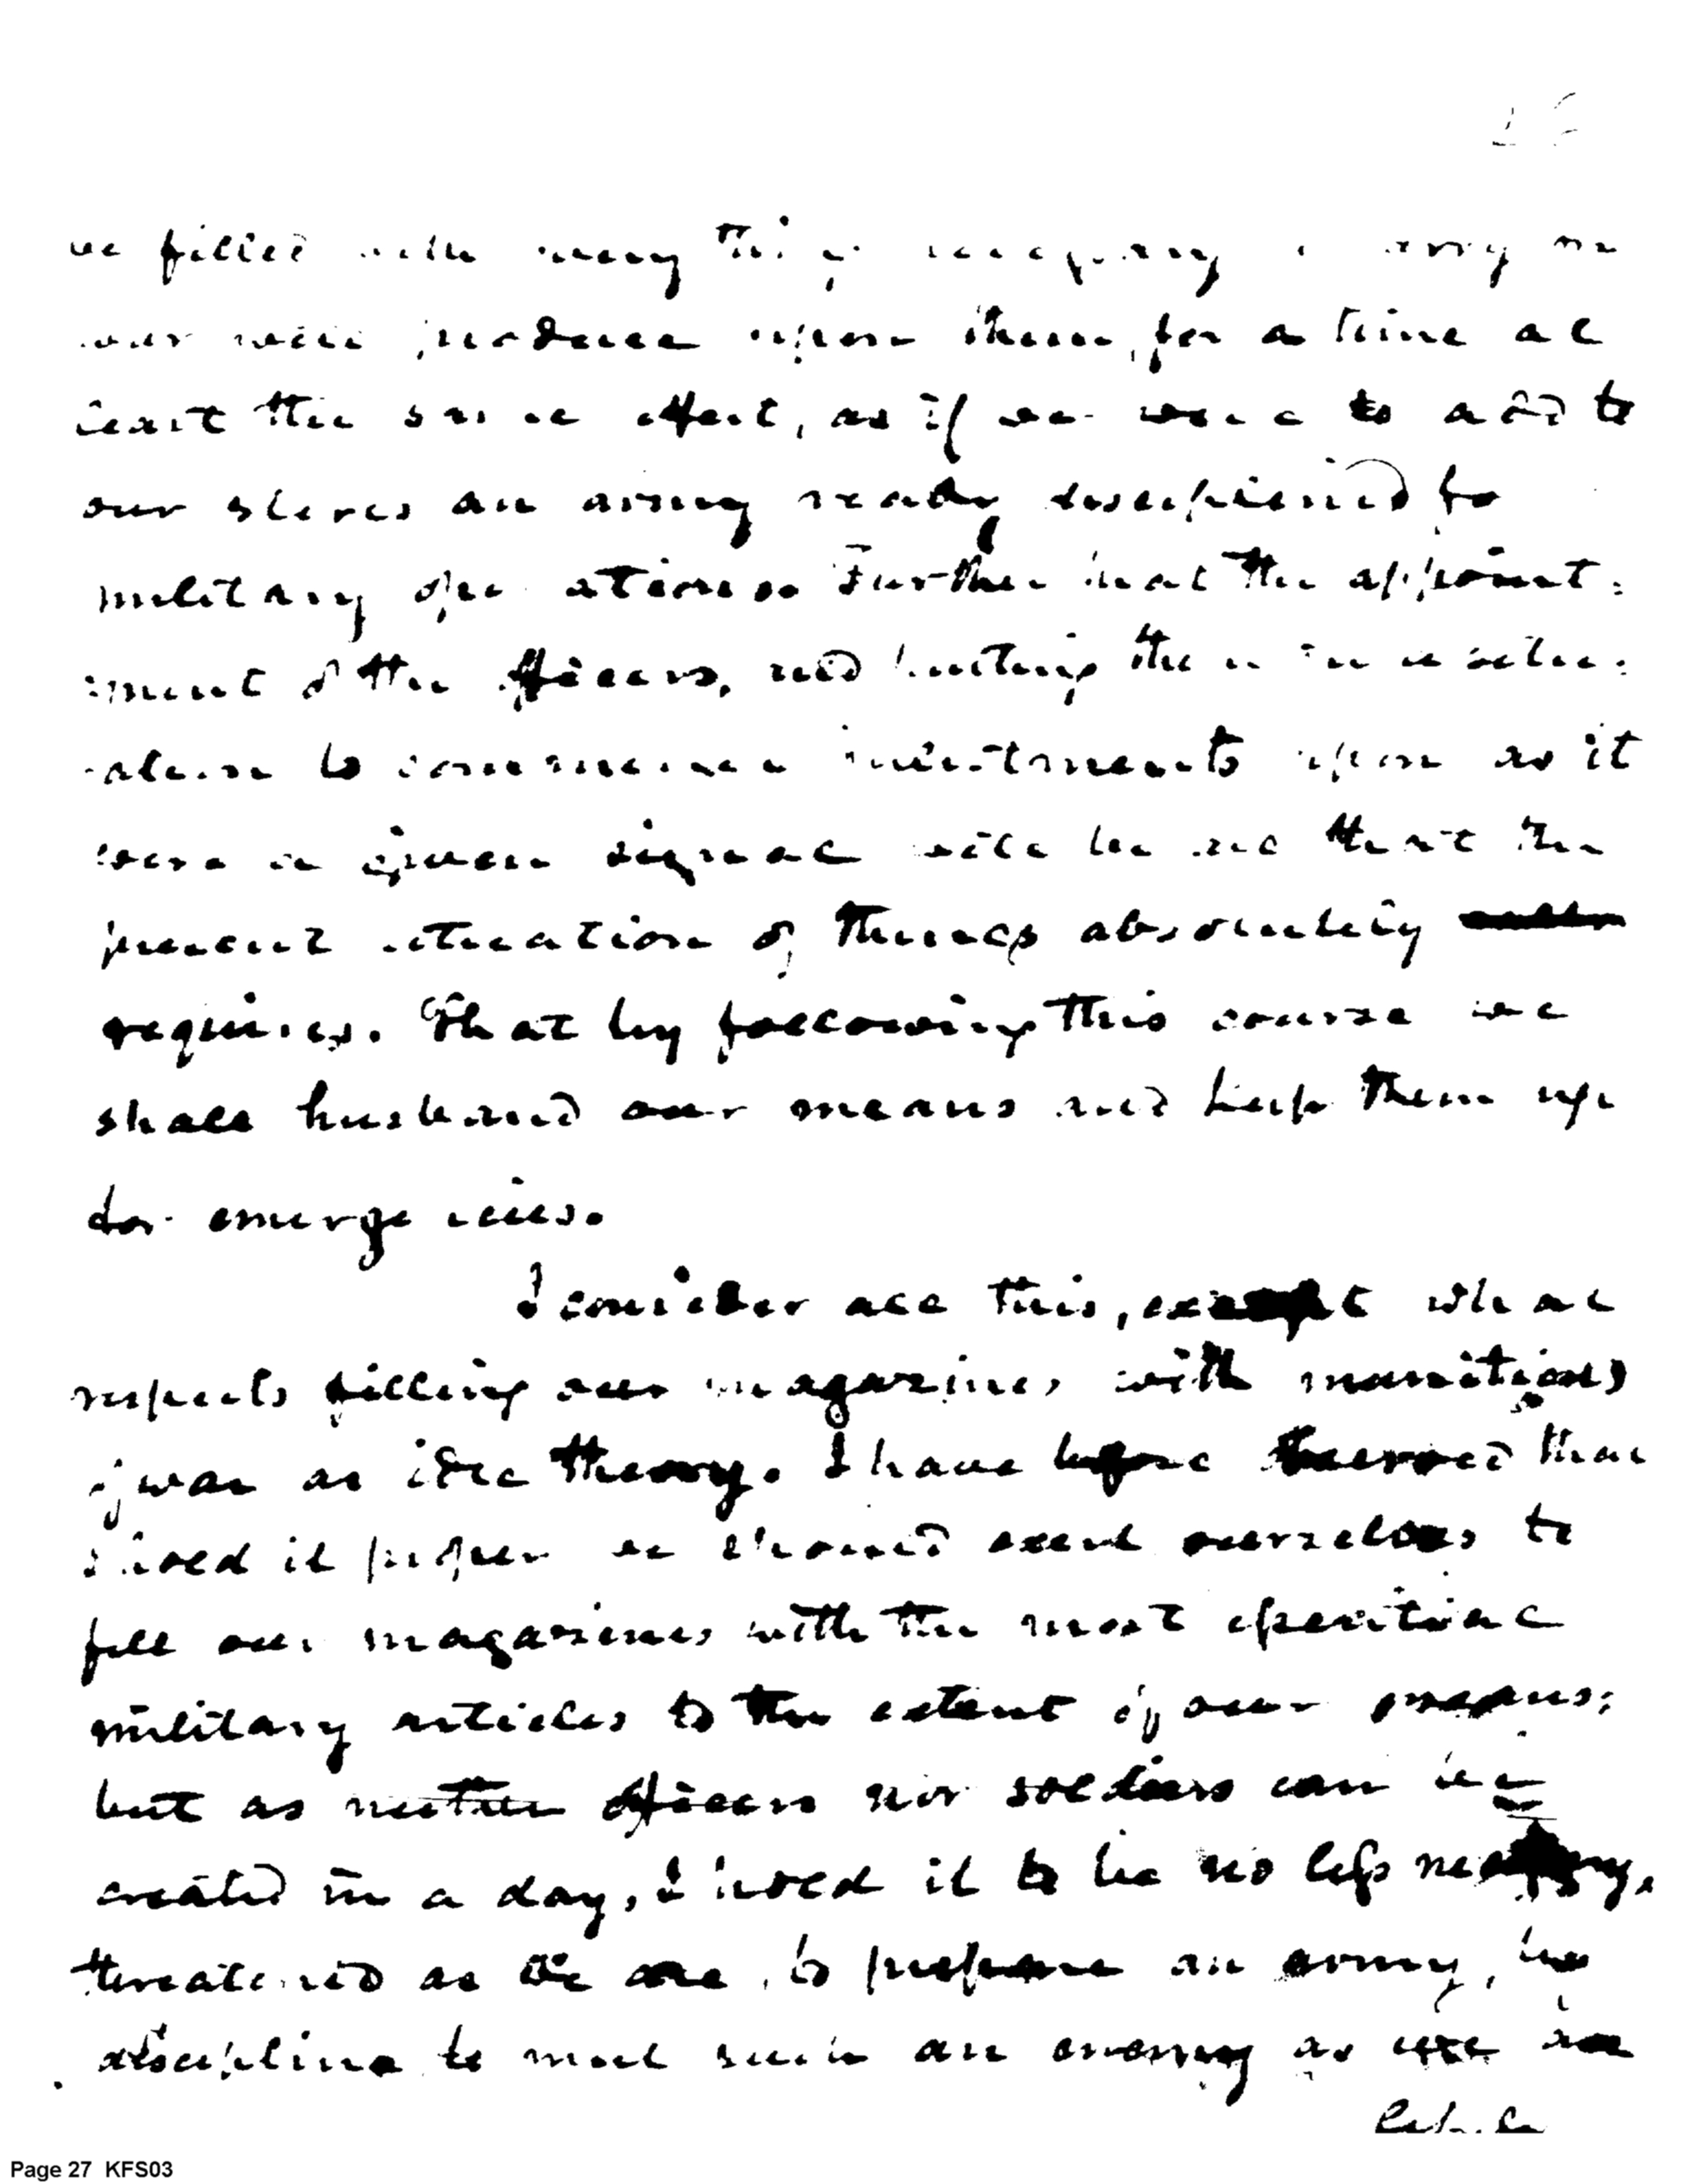 26
be filled with every thing necessary to carry on
war will produce upon them, for a time at
least the same effect, as if we were to add to
our stores an army ready disciplined for
military operations. Further that the appoint:
:ment of the officers, and putting them in a
to commence inlistments upon as it
were a given signal will be all that the
present situation of things absolutely
requires. That by following this course we
shall husband our means and keep them up
for emergencies.
I consider all this, except what
respects filling our magazines with munitions
of war as idle theory. I have before observed that
I hold it proper we should exert ourselves to
fill our magazines with the most essential
military articles to the extent of our means;
but as neither officers nor soldiers can be
created in a day, I hold it to be no less necessary,
threatened as we are, to prepare an army, by
discipline to meet such an enemy as we
Page 27 KFS03